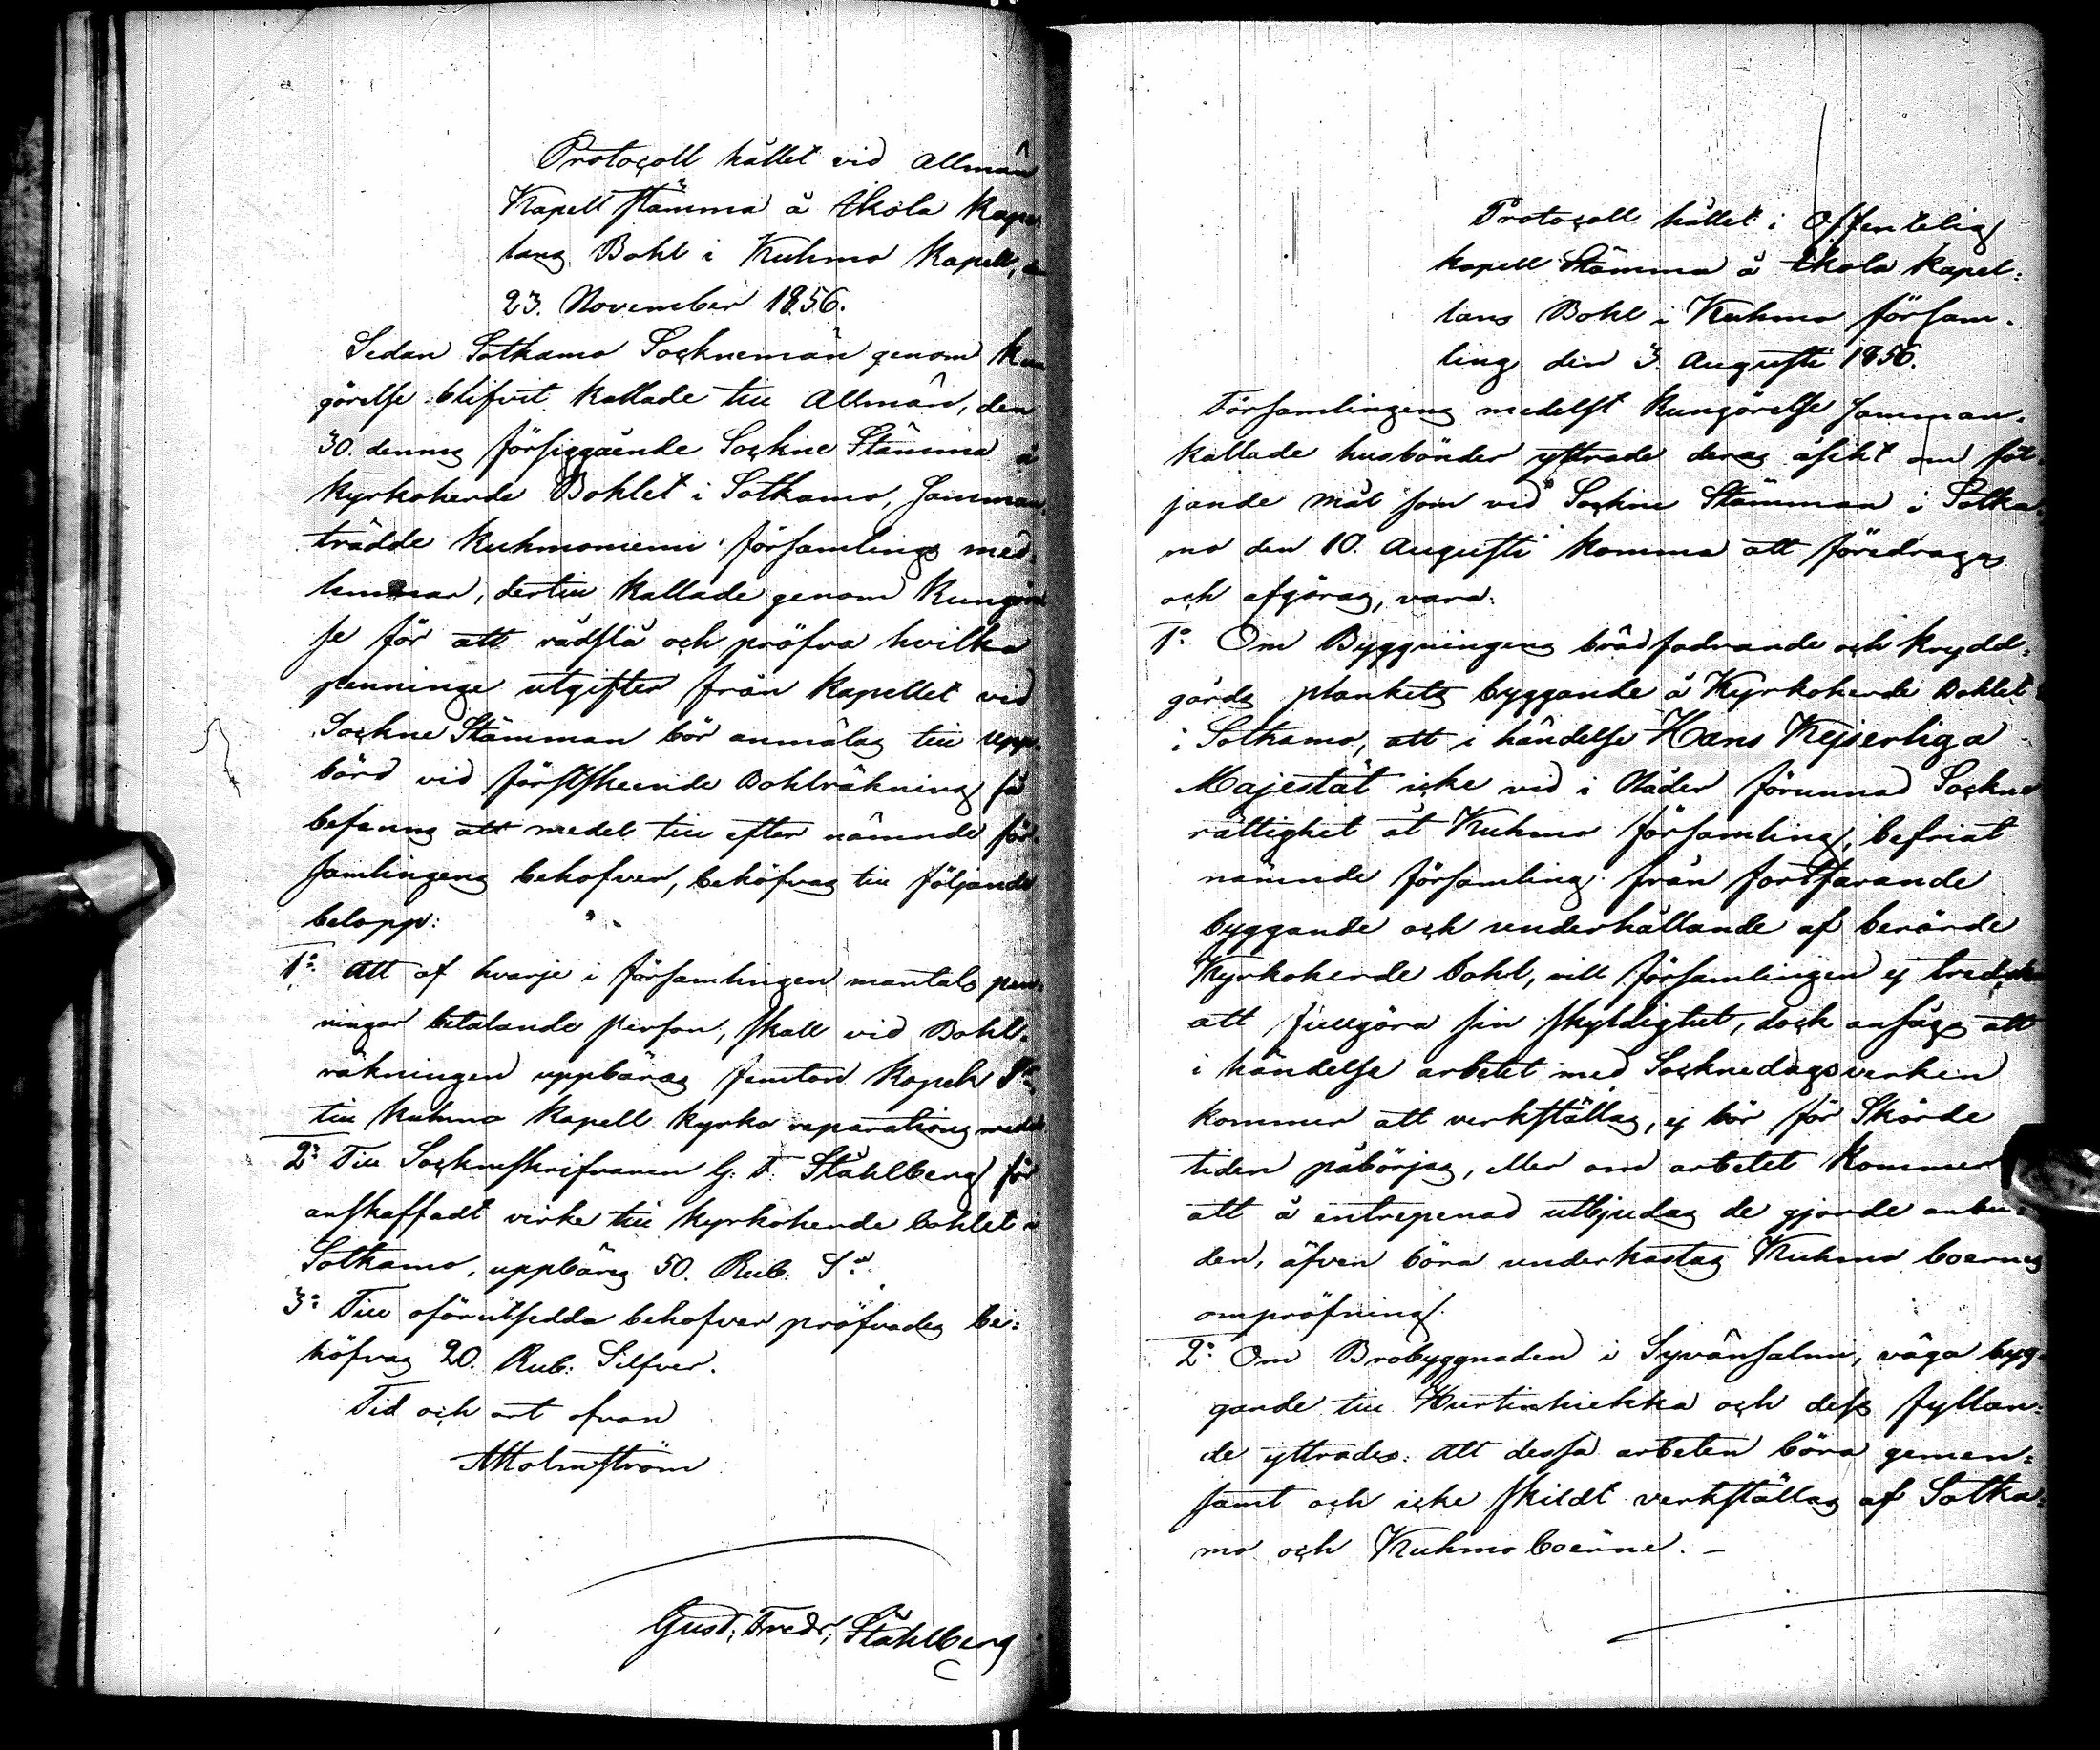 Protocoll hållet vid Allmän
Kapell stämma å Ekola Kapel-
lans Bohl i Kuhmo Kapell, den
23. November 1856.
Sedan Sotkamo Socknemän genom kun
görelse blifvit kallade till Allmän, den
30. dennes försiggående Sockne Stämma å
Kyrkoherde Bohlet i Sotkamo, samman
trädde Kuhmoniemi församlings med-
lemmar, dertill kallade genom Kungörel
se för att rådslå och pröfva hvilka
penninge utgifter från Kapellet vid
Sockne Stämman bör anmälas till upp-
börd vid förstskeende Bohlräkning så
befanns att medel till efter nämnde för-
samlingens behofver, behöfvas till följande
belopp:
1o. Att af hvarje i församlingen mantals pen-
ningar betalande person, skall vid Bohl-
räkningen uppbäras femton Kopek Sr
till Kuhmo Kapell kyrko reparations medel
2o Till Socknskrifvaren G. F. Ståhlberg för
anskaffadt virke till Kyrkoherde bohlet i
Sotkamo, uppbärs 50. Rub. Sr.
3o Till oförutsedda behofver pröfvades be-
höfvas 20. Rub: Silfver.
Tid och ort ofvan
AHolmström
Gust. Fredr. Ståhlberg
Protocoll hållet i Offentelig
kapell Stämma å Ekola Kapel-
lans Bohl i Kuhmo försam-
ling den 3. Augusti 1856.
Församlingens medelst kungörelse samman-
kallade husbönder yttrade deras åsikt om föl-
jande mål som vid Sockne Stämman i Sotka-
mo den 10. Augusti komma att föredragas
och afgöras, vara:
1o Om Byggningens brädfodrande och krydd-
gårds plankets byggande å Kyrkoherde Bohlet
i Sotkamo, att i händelse Hans Kejserliga
Majestät icke vid i Nåder förunnad Sockne
rättighet åt Kuhmo församling, befriat
nämnde församling från fortfarande
byggande och underhållande af berörde
Kyrkoherde bohl, vill församlingen ej tredska
att fullgöra sin skyldighet, dock ansågs att
i händelse arbetet med Socknedagsverken
kommer att verkställas, ej bör för Skörde
tiden påbörjas, eller om arbetet kommer
att å entrepenad utbjudas de gjorde anbu-
den, äfven böra underkastas Kuhmo boernes
ompröfning.
2o Om Brobyggnaden i Syvänsalmi, väga byg-
gande till Hurtinhiekka och dess fyllan-
de yttrades: Att dessa arbeten böra gemen-
samt och icke skildt verkställas af Sotka-
mo och Kuhmo boerne. –